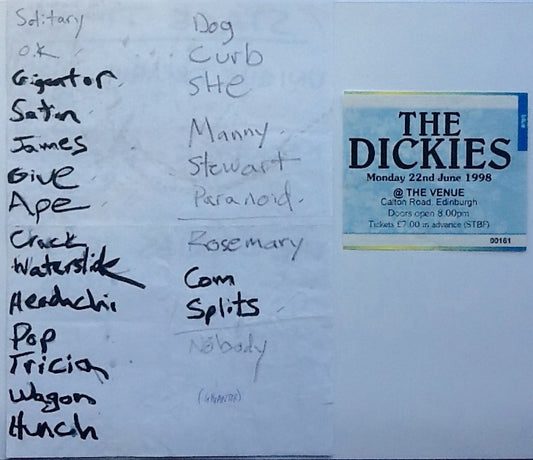 Solitary
O.K
Gigantor
Satin
James
Give
Ape
Crack
Waterslide
Headachi
Pop
Tricia
Wagon
Hunch
Dog
Curb
SHE
Manny
Stewart
Paranoid
Rosemary
Com
Splits
Nobody
(GIGANTOR)
THE
DICKIES
Monday 22nd June 1998
@ THE VENUE
Calton Road, Edinburgh
Doors open 8.00pm
Tickets £7.00 in advance (STBF)
00161